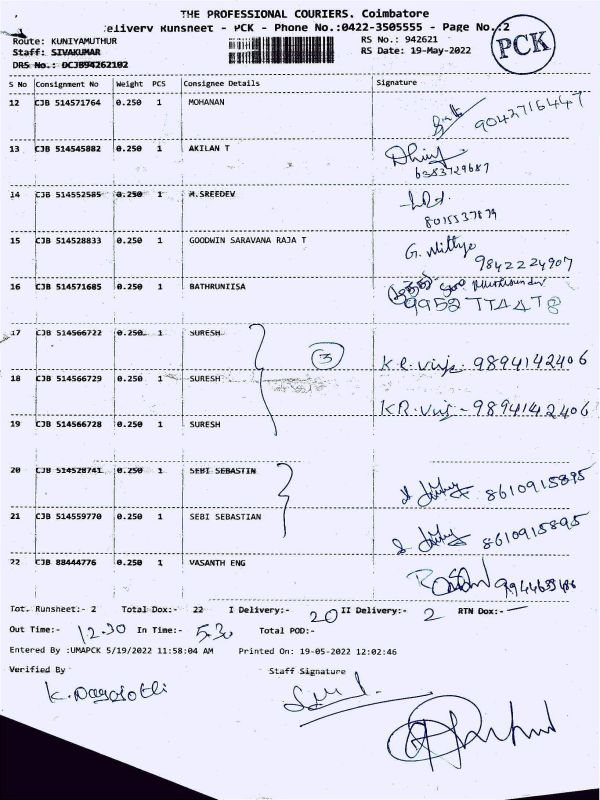 THE PROFESSIONAL COURIERS. Coimbatore
elivery Runsheet - PCK - Phone No.:0422-3505555 - Page No.:2
Route: KUNIYAMUTHUR RS No.: 942621
Staff: SIVAKUMAR RS Date: 19-May-2022
DRS No.: DCJB94262102
PCK
S No Consignment No Weight PCS Consignee Details Signature
12 CJB 514571764 0.250 1 MOHANAN
9042716447
13 CJB 514545882 0.250 1 AKILAN T
6383729687
14 CJB 514552585 0.250 1 M.SREEDEV
15 CJB 514528833 0.250 1 GOODWIN SARAVANA RAJA T G. Nithya
9842224907
16 CJB 514571685 0.250 1 BATHRUNIISA
17 CJB 514566722 0.250 1 SURESH
3 9894142406
18 CJB 514566729 0.250 1 SURESH
9894142406
19 CJB 514566728 0.250 1 SURESH
20 CJB 514528741 0.250 1 SEBI SEBASTIN 8610915895
21 CJB 514559770 0.250 1 SEBI SEBASTIAN 8610915895
22 CJB 88444776 0.250 1 VASANTH ENG
Tot. Runsheet:- 2 Total Dox:- 22 I Delivery:- 20 II Delivery:- 2 RTN Dox:- —
Out Time:- 12.30 In Time:- 5.30 Total POD:-
Entered By :UMAPCK 5/19/2022 11:58:04 AM Printed On: 19-05-2022 12:02:46
Verified By Staff Signature